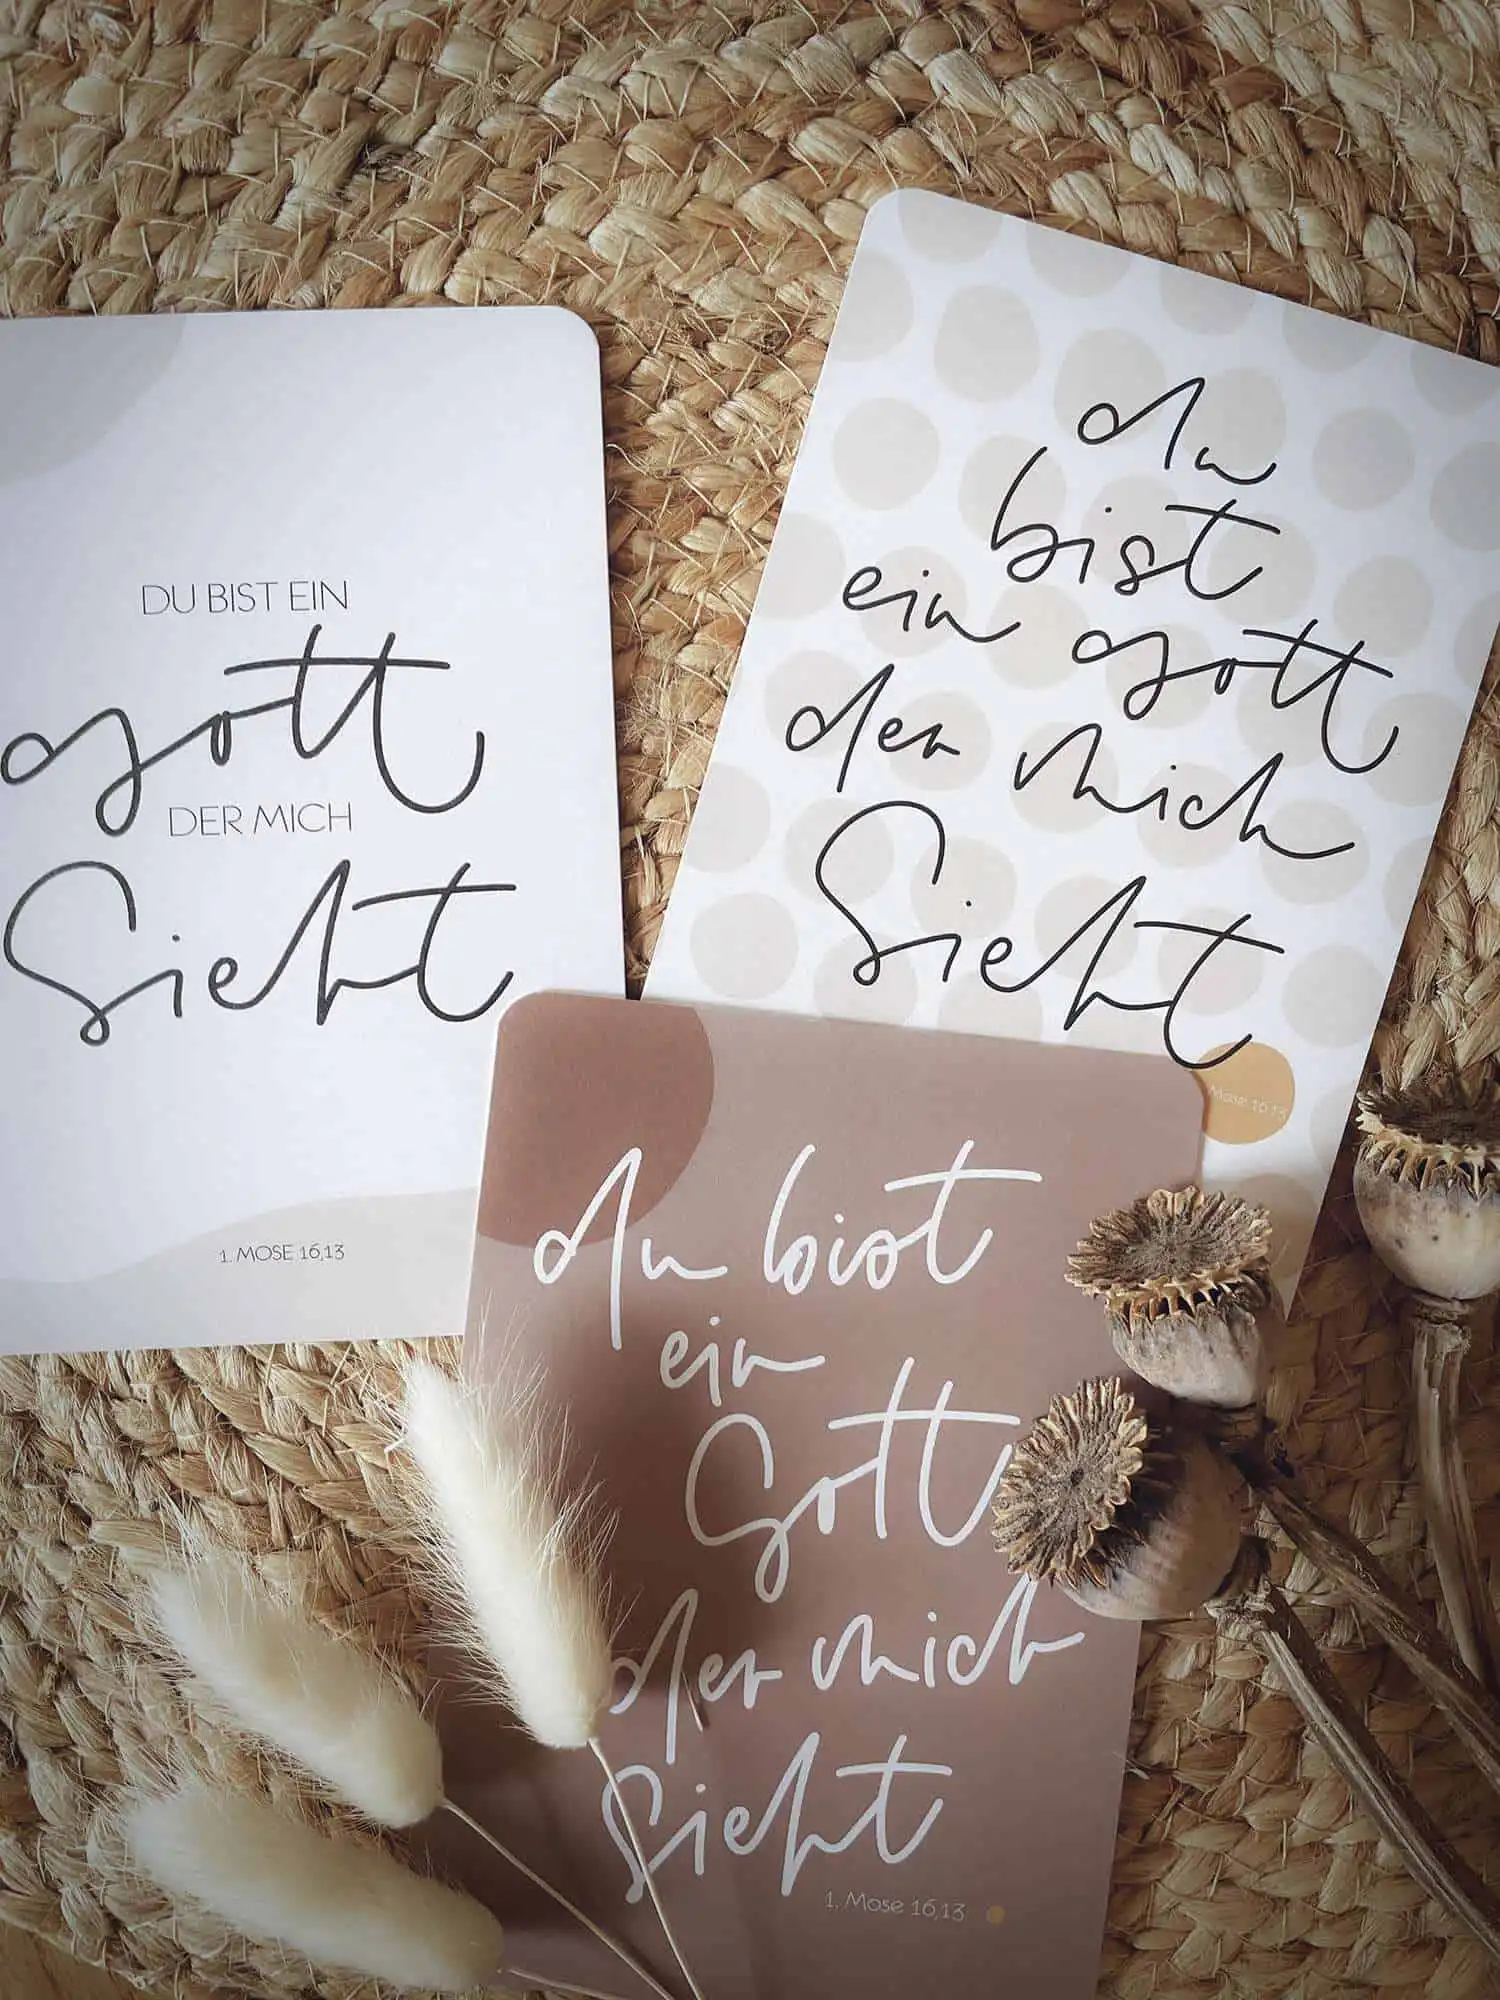 DU BIST EIN
gott
DER MICH
Sieht
1. MOSE 16,13
du
bist
ein gott
der mich
Sieht
Mose 16,13
du bist
ein
Gott
der mich
Sieht
1. Mose 16,13